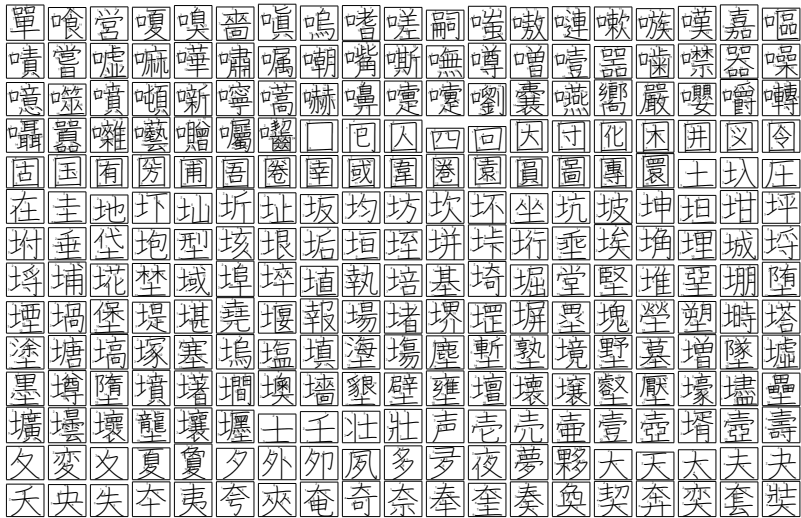 單喰営嗄嗅嗇嗔嗚嗜嗟嗣嗤嗷嗹嗽嗾嘆嘉嘔
嘖嘗嘘嘛嘩嘯嘱嘲嘴嘶嘸噂噌噎噐噛噤器噪
噫噬噴噸噺嚀嚆嚇嚊嚔嚔嚠嚢嚥嚮嚴嚶嚼囀
囁囂囃囈囎囑囓囗囘囚四回因囮囲困囹図囹
固国囿圀圃圄圈圉國圍圏園圓圖團圜土圦圧
在圭地圷圸圻址坂均坊坎坏坐坑坡坤坦坩坪
坿垂垈垉型垓垠垢垣垤垪垰垳埀埃埆埋城埒
埓埔埖埜域埠埣埴執培基埼堀堂堅堆堊堋堕
堙堝堡堤堪堯堰報場堵堺塀塁塊塋塑塒塔
塗塘塙塚塞塢塩填塰塲塵塹塾境墅墓増墜墟
墨墫墮墳墸墹墺墻墾壁壅壇壊壌壑壓壕壗壘
壙壜壞壟壤壥士壬壮壯声壱売壷壹壺壻壼壽
夂変夊夏夐夕外夘夙多夛夜夢夥大天太夫夬
夭央失夲夷夸夾奄奇奈奉奎奏奐契奔奕套奘